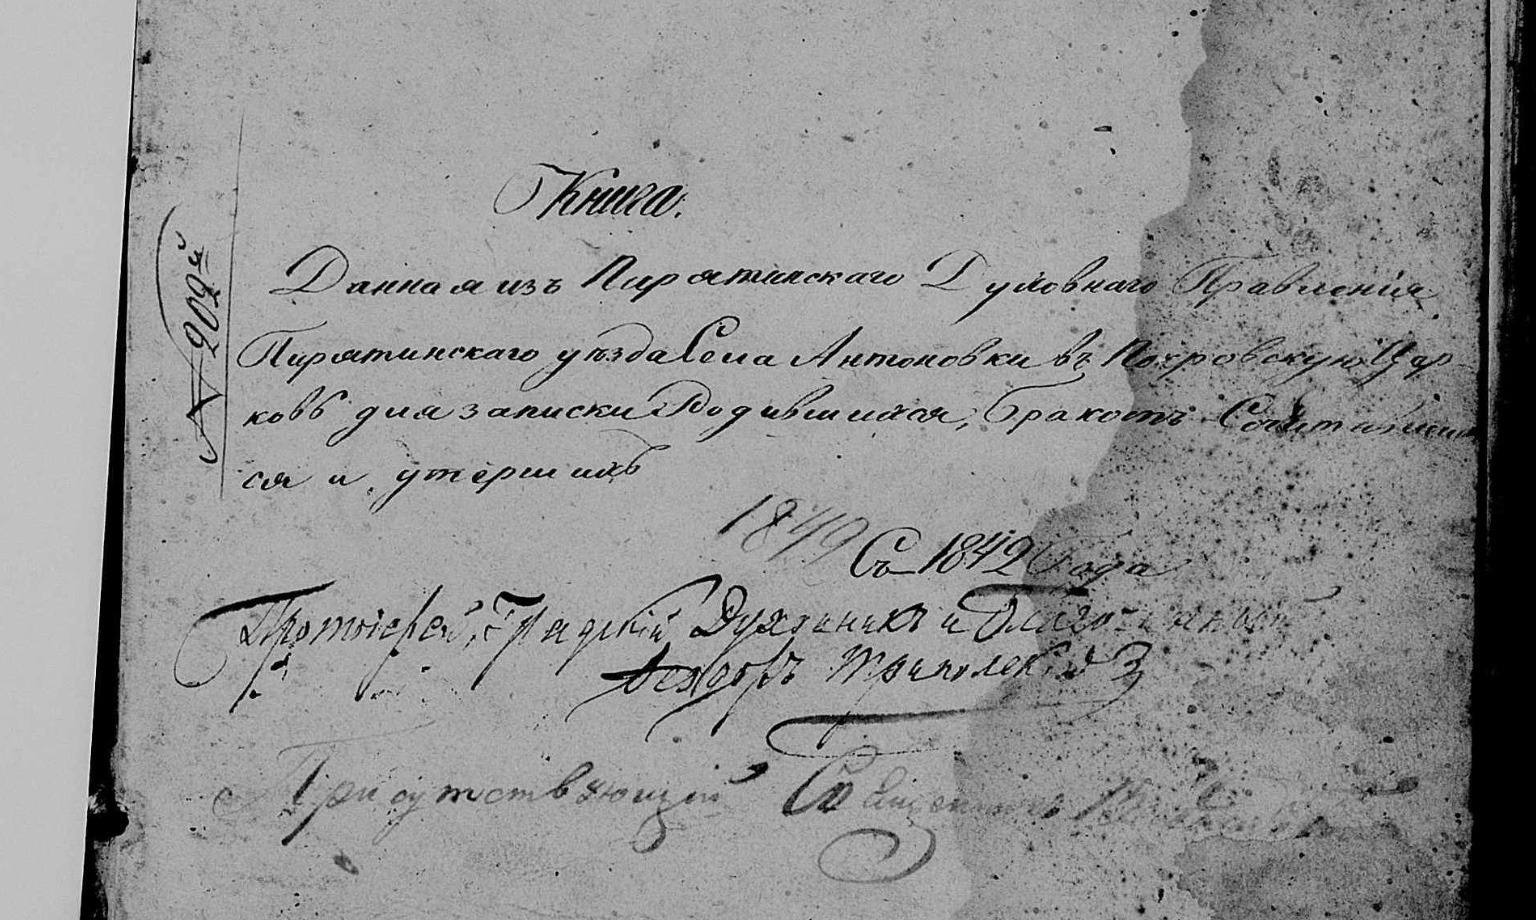 № 209й
Книга.
Данная изъ Пирятинскаго Духовнаго Правленія
Пирятинскаго уѣзда Села Антоновки въ Покровскую Цер-
ковь для записки Родившихся, бракомъ Сочитавших
ся и умершихъ
1849 Съ 1842 Года
Протоіерей, Градскій Духовникъ и Благочинный
Ѳеодоръ Триполскій
Присутствующій Священникъ